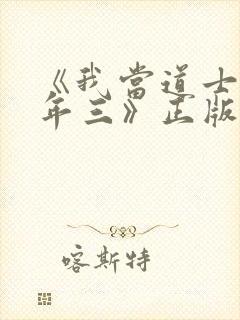 《我當道士
年三》正版
喀斯特